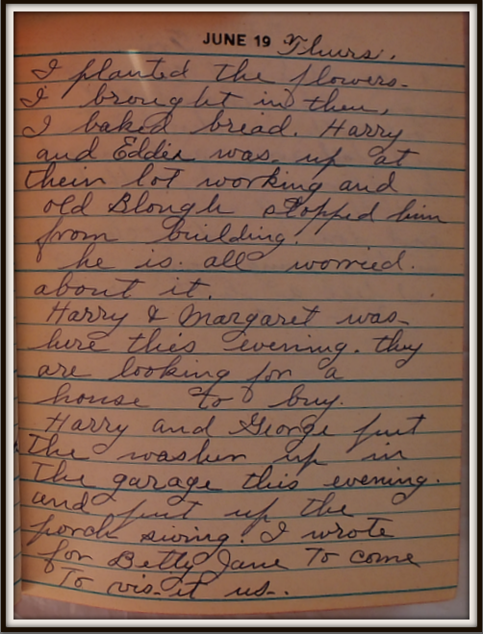 JUNE 19 Thurs.
I planted the flowers.
I brought in then,
I baked bread. Harry
and Eddie was up at
their lot working and
old Blough stopped him
from building.
he is all worried.
about it.
Harry & Margaret was
here this evening. they
are looking for a
house to buy.
Harry and George put
the washer up in
the garage this evening.
and put up the
porch swing. I wrote
for Betty Jane To come
To visit us.